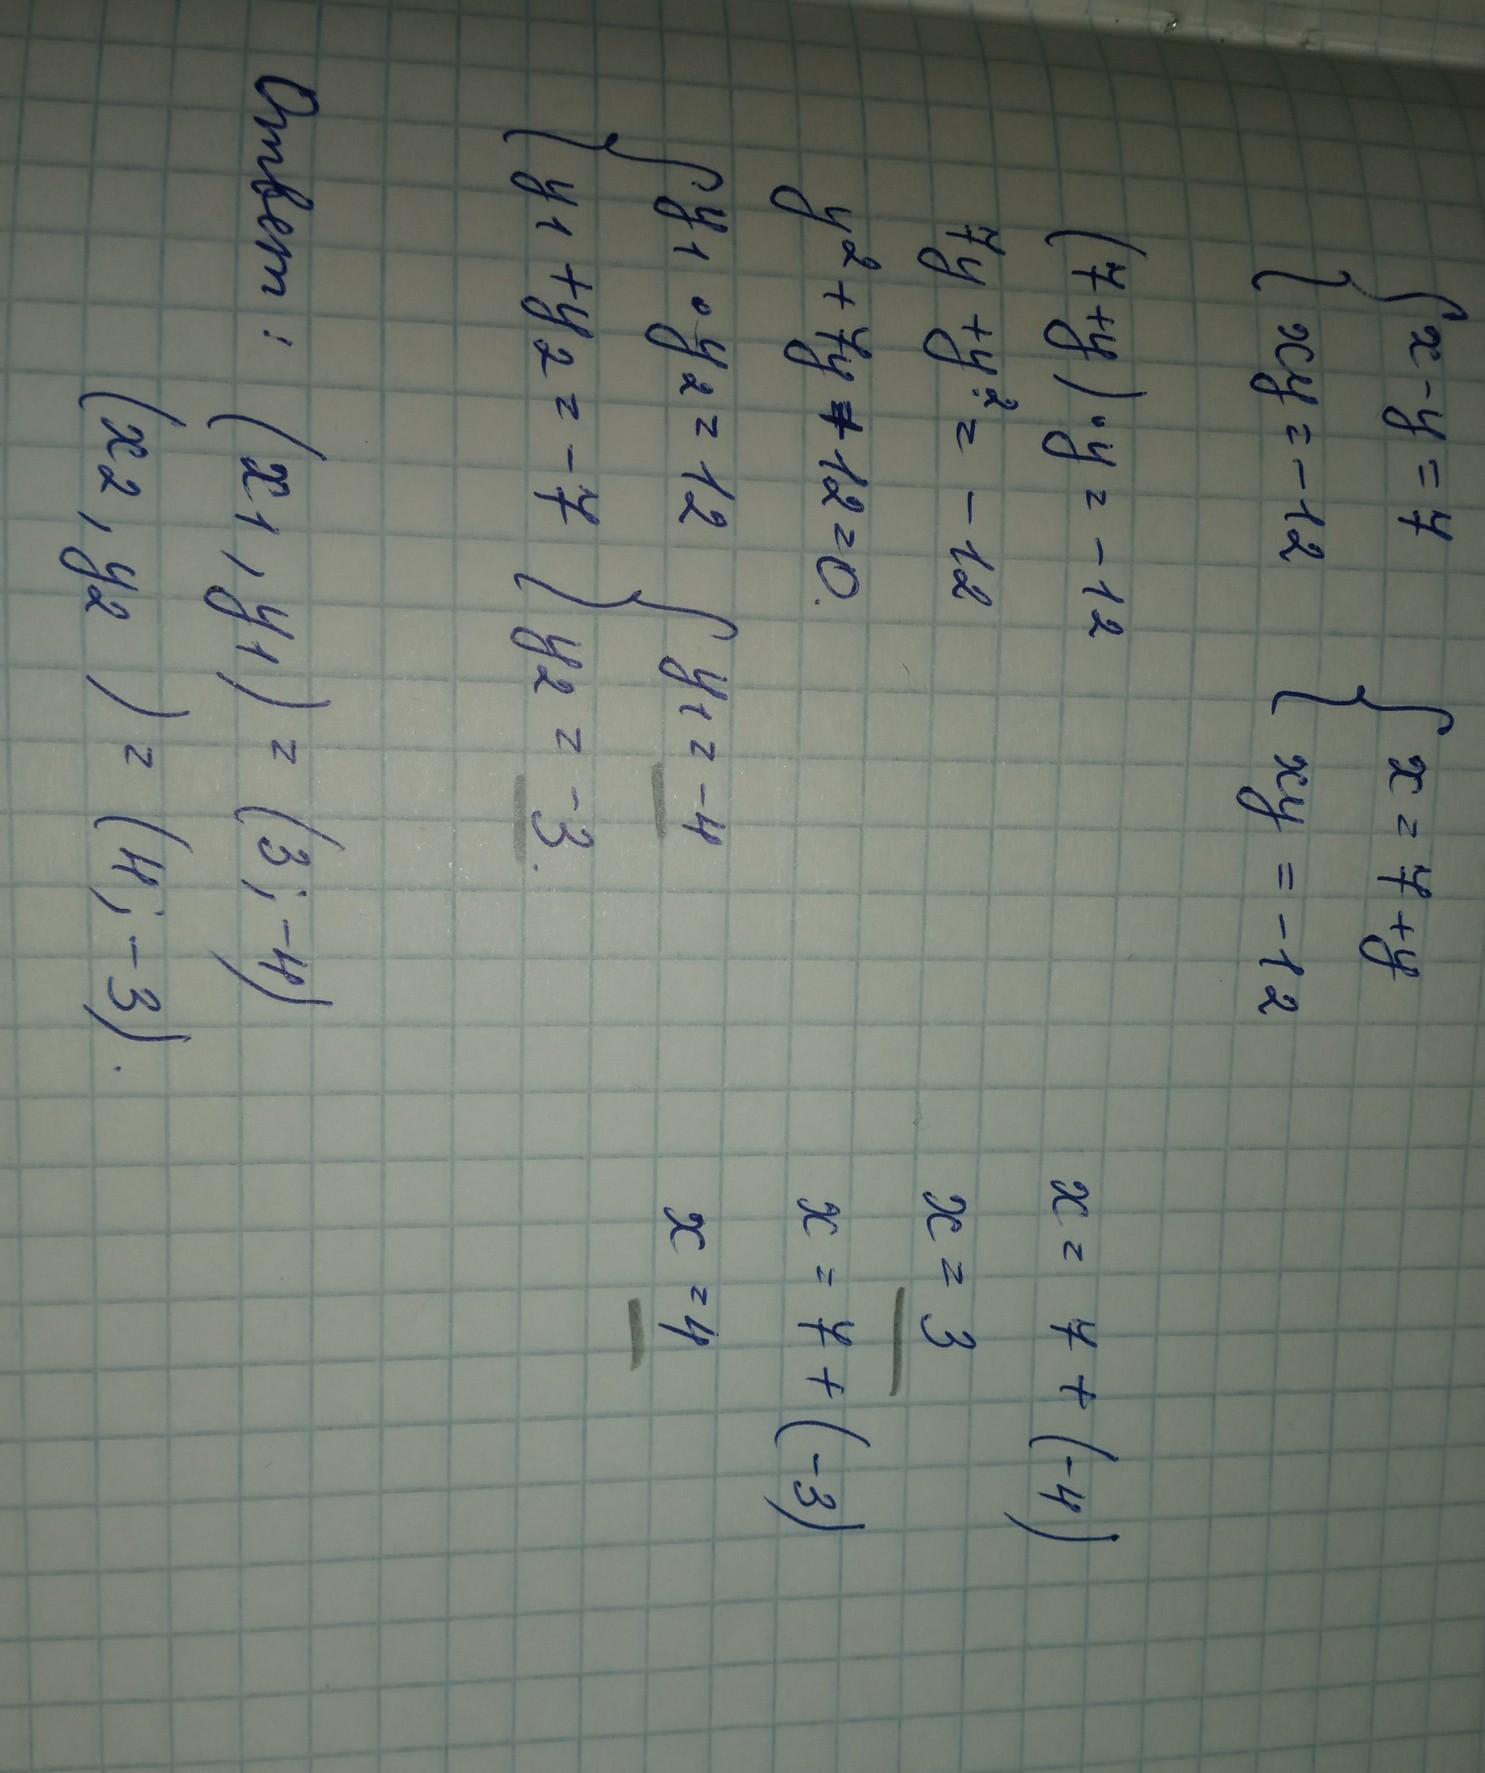 { x - y = 7
{ xy = -12
{ x = 7 + y
{ xy = -12
(7 + y) • y = -12
7y + y² = -12
y² + 7y + 12 = 0.
{ y1 • y2 = 12
{ y1 + y2 = -7
{ y1 = -4
{ y2 = -3.
x = 7 + (-4)
x = 3
x = 7 + (-3)
x = 4
Ответ: (x1, y1) = (3; -4)
(x2, y2) = (4; -3).